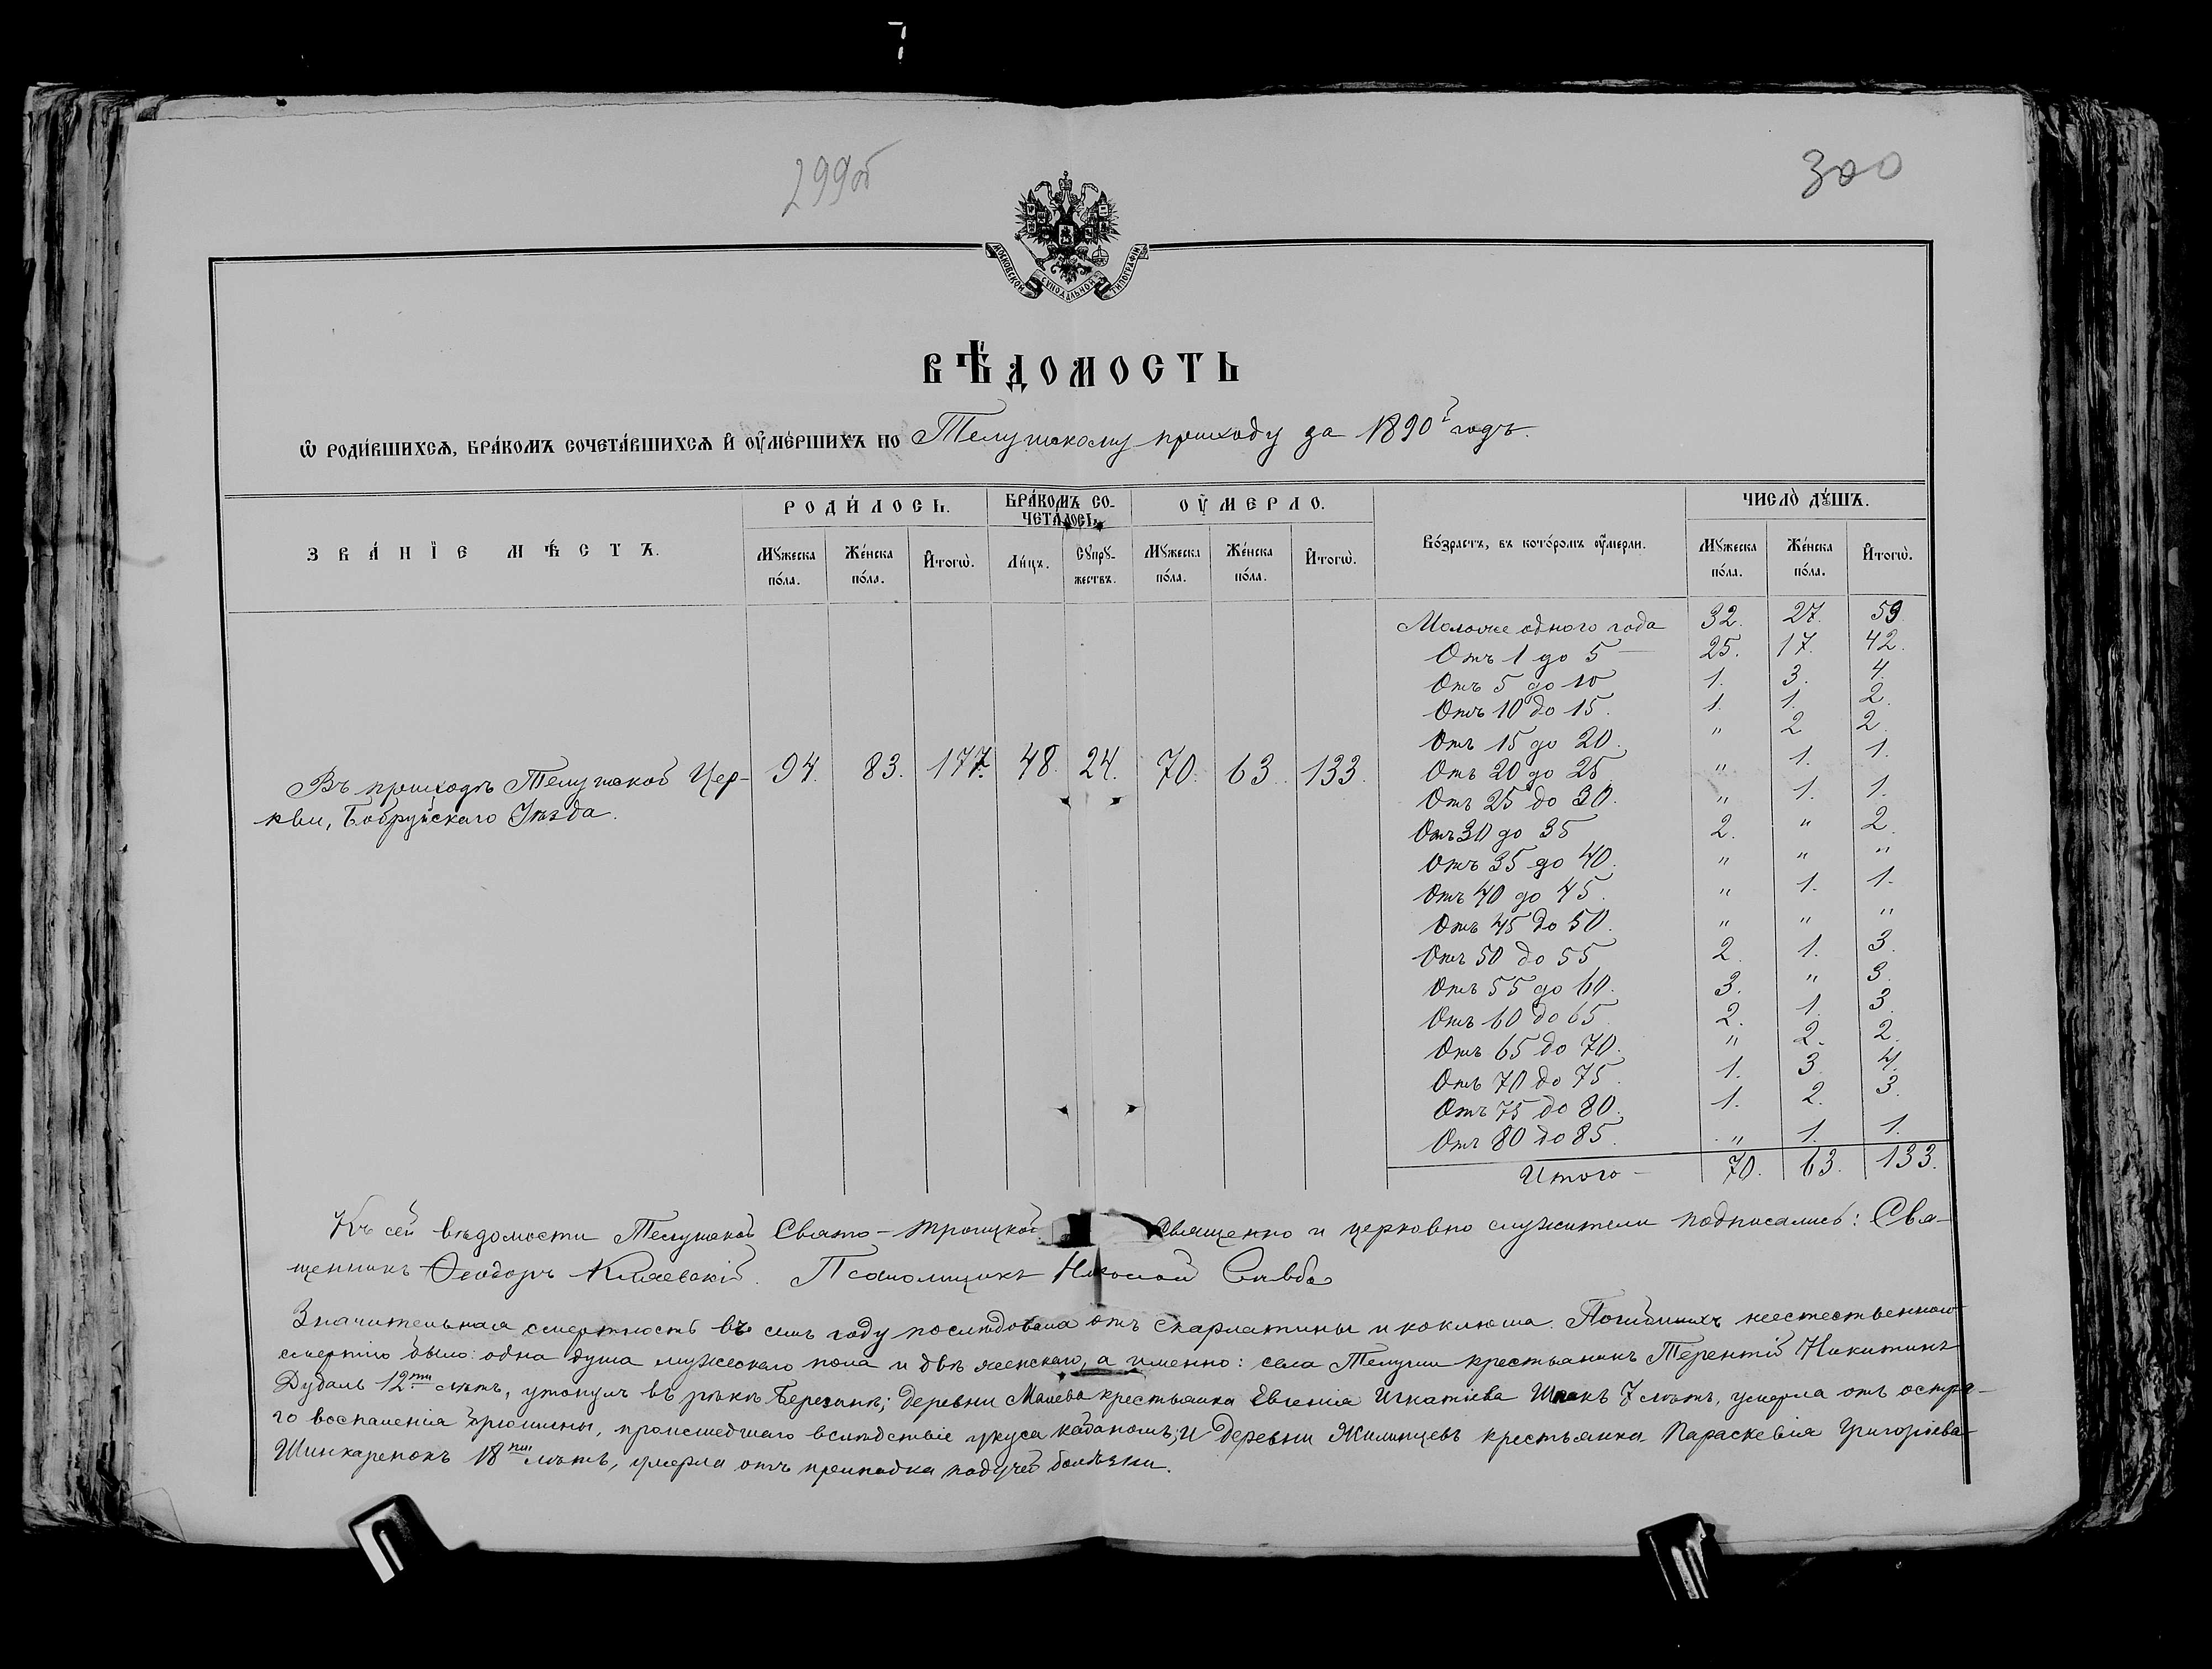 299об
300
МОСКОВСКОЙ СѴНОДАЛЬНОЙ ТИПОГРАФІИ
ВѢ́ДОМОСТЬ
Ѡ҆ РОДИ́ВШИХСѦ, БРА́КОМЪ СОЧЕТА́ВШИХСѦ И҆ ОУ҆МЕ́РШИХЪ ПО Телушскому приходу за 1890й годъ.
ЗВА́НЇЕ МѢ́СТЪ.
РОДИ́ЛОСЬ.
БРА́КОМЪ СО-
ЧЕТА́ЛОСЬ.
ОУ҆́МЕРЛО.
Во́зрастъ, въ кото́ромъ оу҆́мерли.
ЧИСЛО̀ ДꙊ́ШЪ.
Мꙋ́жеска по́ла.
Же́нска по́ла.
И҆тогѡ̀.
Ли́цъ.
Сꙋпрꙋ́-жествъ.
Мꙋ́жеска по́ла.
Же́нска по́ла.
И҆тогѡ̀.
Мꙋ́жеска по́ла.
Же́нска по́ла.
И҆тогѡ̀.
Моложе одного года 32. 27. 59.
Отъ 1 до 5 25. 17. 42.
Отъ 5 до 10 1. 3. 4.
Отъ 10 до 15. 1. 1. 2.
Отъ 15 до 20. " 2 2.
Отъ 20 до 25. " 1. 1.
Отъ 25 до 30. " 1. 1.
Отъ 30 до 35 2. " 2.
Отъ 35 до 40. " " "
Отъ 40 до 45. " 1. 1.
Отъ 45 до 50. " " "
Отъ 50 до 55 2. 1. 3.
Отъ 55 до 60. 3. " 3.
Отъ 60 до 65. 2. 1. 3.
Отъ 65 до 70. " 2. 2.
Отъ 70 до 75. 1. 3. 4.
Отъ 75 до 80. 1. 2. 3.
Отъ 80 до 85. " 1. 1.
Итого - 70. 63. 133.
Въ приходѣ Телушской Цер-
кви, Бобруйскаго Уѣзда.
94. 83. 177. 48. 24. 70. 63. 133.
Къ сей вѣдомости Телушской Свято-Троицкой Священно и церковно служители подписались: Свя-
щенникъ Ѳеодоръ Псаломщикъ Николай
Значительная смертность въ семъ году послѣдовала отъ скарлатины и коклюша. Погибшихъ неестественною
смертію было: одна душа мужескаго пола и двѣ женскаго, а именно: села Телуши крестьянинъ Терентій Никитинъ
Дубаль 12ти лѣтъ, утонулъ въ рѣкѣ Березинѣ; деревни Малева крестьянка Евгенія Игнатіева 7 лѣтъ, умерла отъ остра-
го воспаленія брюшины, происшедшаго вслѣдствіе укуса кабаномъ; и деревни Жилинцевъ крестьянка Параскевія Григоріева
Шинкаренокъ 18ти лѣтъ, умерла отъ припадка падучей болѣзни.